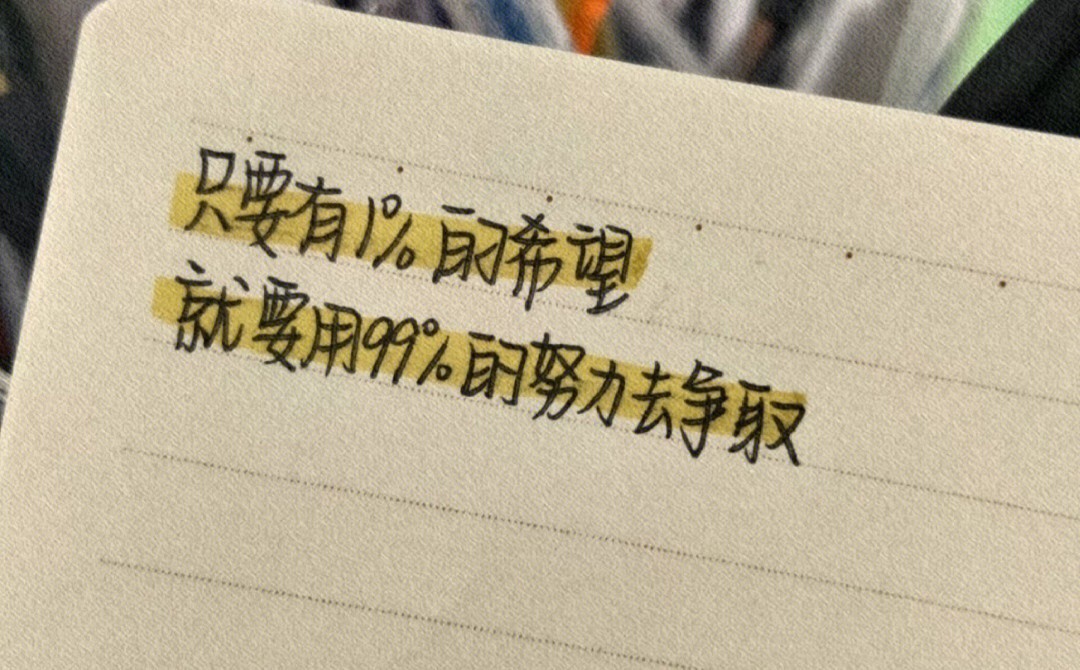 只要有1%的希望
就要用99%的努力去争取